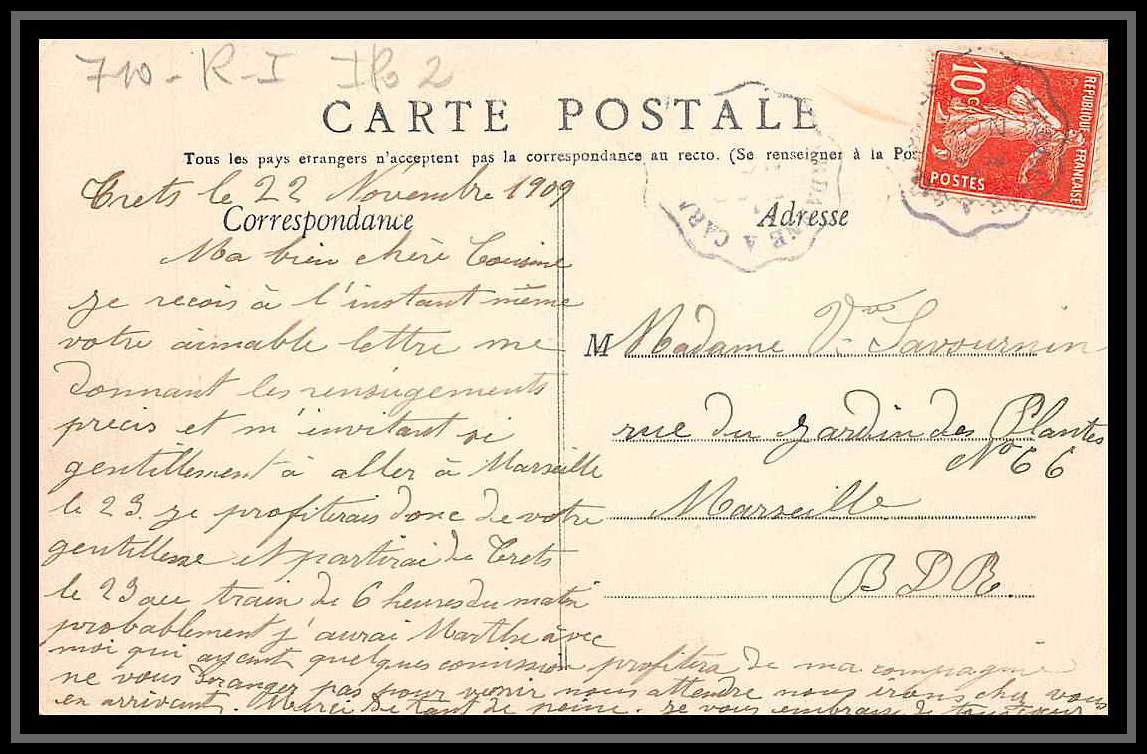 710 - R - I
CARTE POSTALE
Tous les pays etrangers n'acceptent pas la correspondance au recto. (Se renseigner à la Pos
10c
REPUBLIQUE FRANÇAISE
POSTES
NE A CARN
Trets le 22 Novembre 1909
Correspondance
Ma bien chère Cousine
je recois à l'instant même
votre aimable lettre me
donnant les renseigements
précis et m'invitant si
gentillement à aller à Marseille
le 23 je profiterais donc de votre
gentillesse et partirai de Trets
le 23 au train de 6 heures du matin
probablement j'aurai Marthe avec
moi qui ayant quelques comission profitera de ma compagnie
ne vous déranger pas pour venir nous attendre nous irons chez vous
en arrivant. Merci de tant de peine. je vous embrasse de tout cœur
Adresse
M Madame Vve Savournin
rue du Jardin des Plantes
No 66
Marseille
B D R.